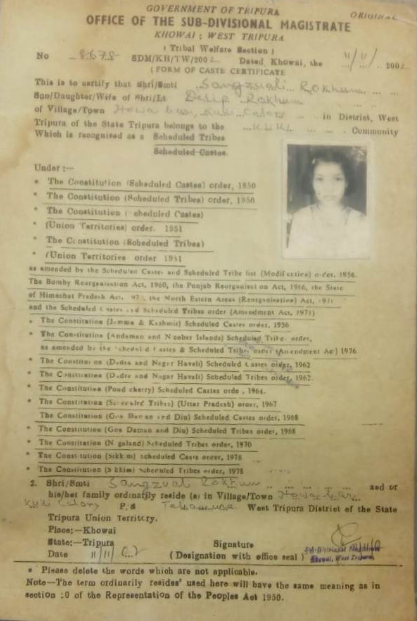 GOVERNMENT OF TRIPURA
ORIGINAL
OFFICE OF THE SUB-DIVISIONAL MAGISTRATE
KHOWAI : WEST TRIPURA
( Tribal Welfare Section )
No SDM/KH/TW/200 Dated Khowai, the 11/11/ 200
( FORM OF CASTE CERTIFICATE )
This is to certify that Shri/Smti
Son/Daughter/Wife of Shri/Lt Dilip
of Village/Town in District, West
Tripura of the State Tripura belongs to the Community
Which is recognised as a Scheduled Tribes
Scheduled Castes.
Under :—
* The Constitution (Scheduled Castes) order, 1950
* The Constitution (Scheduled Tribes) order, 1950
* The Constitution (Scheduled Castes)
* (Union Territories) order. 1951
* The Constitution (Scheduled Tribes)
* (Union Territories order 1951
as amended by the Scheduled Castes and Scheduled Tribe list (Modification) order, 1956.
The Bombay Reorganisation Act, 1960, the Punjab Reorganisation Act, 1966, the State
of Himachal Pradesh Act, the North Eastern Areas (Reorganisation) Act,
and the Scheduled Castes and Scheduled Tribes order (Amendment Act, 1976)
* The Constitution (Jammu & Kashmir) Scheduled Castes order, 1956
* The Constitution (Andaman and Nicobar Islands) Scheduled Tribe order,
as amended by the Scheduled Castes & Scheduled Tribes order (Amendment Act) 1976
* The Constitution (Dadra and Nagar Haveli) Scheduled Castes order, 1962
* The Constitution (Dadra and Nagar Haveli) Scheduled Tribes order, 1962.
* The Constitution (Pondicherry) Scheduled Castes order, 1964.
* The Constitution (Scheduled Tribes) (Uttar Pradesh) order, 1967
The Constitution (Goa Daman and Diu) Scheduled Castes order, 1968
* The Constitution (Goa Daman and Diu) Scheduled Tribes order, 1968
* The Constitution (Nagaland) Scheduled Tribes order, 1970
* The Constitution (Sikkim) Scheduled Caste order, 1978
* The Constitution (Sikkim) Scheduled Tribes order, 1978
2. Shri/Smti and or
his/her family ordinarily reside (s) in Village/Town
P.S West Tripura District of the State
Tripura Union Territory.
Place:—Khowai
State:—Tripura Signature
Date 11/11/ ( Designation with office seal )
Sub-Divisional Magistrate
Khowai, West Tripura
* Please delete the words which are not applicable.
Note—The term ordinarily resides' used here will have the same meaning as in
section 20 of the Representation of the Peoples Act 1950.